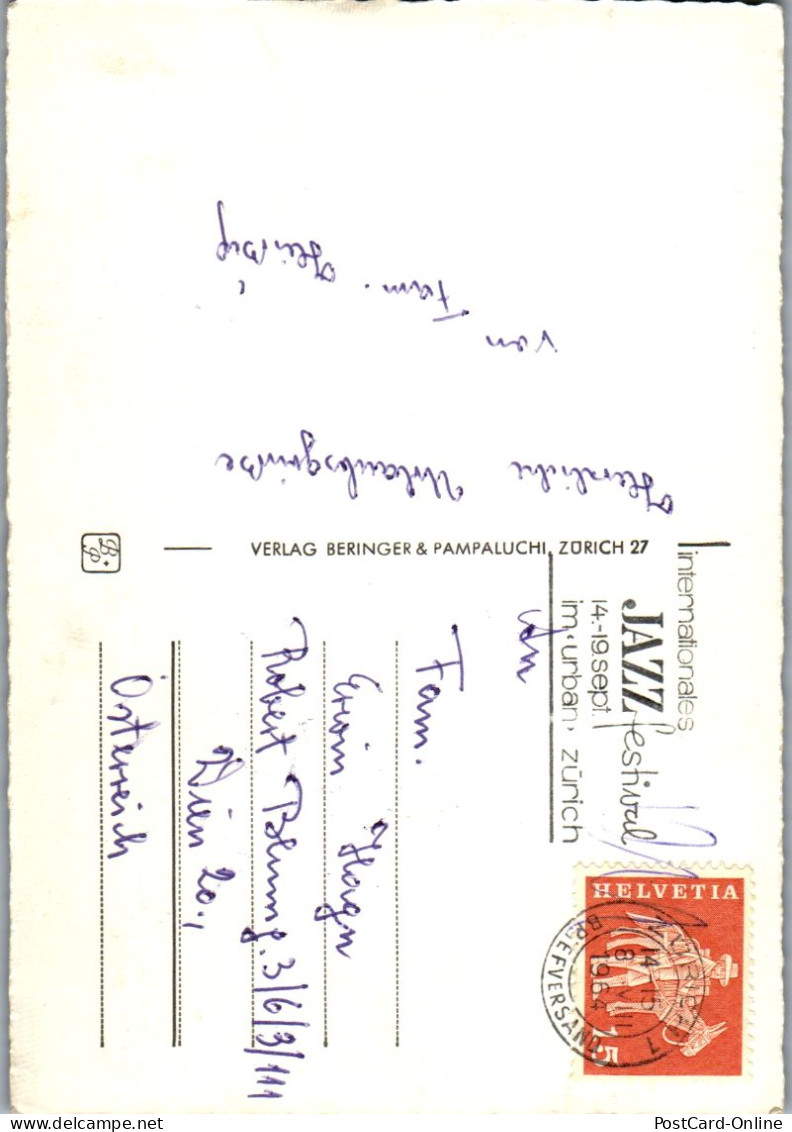 Herzliche Urlaubsgrüße
von
Fam.
VERLAG BERINGER & PAMPALUCHI, ZÜRICH 27
B+P
internationales
JAZZ festival
14.-19. sept.
im ‹urban› zürich
HELVETIA
15
ZÜRICH
1
14-15
8 VIII
1964
BRIEFVERSAND
An
Fam.
Erwin Hagn
Robert Blumg. 3/6/3/111
Wien 20.,
Österreich
PostCard-Online